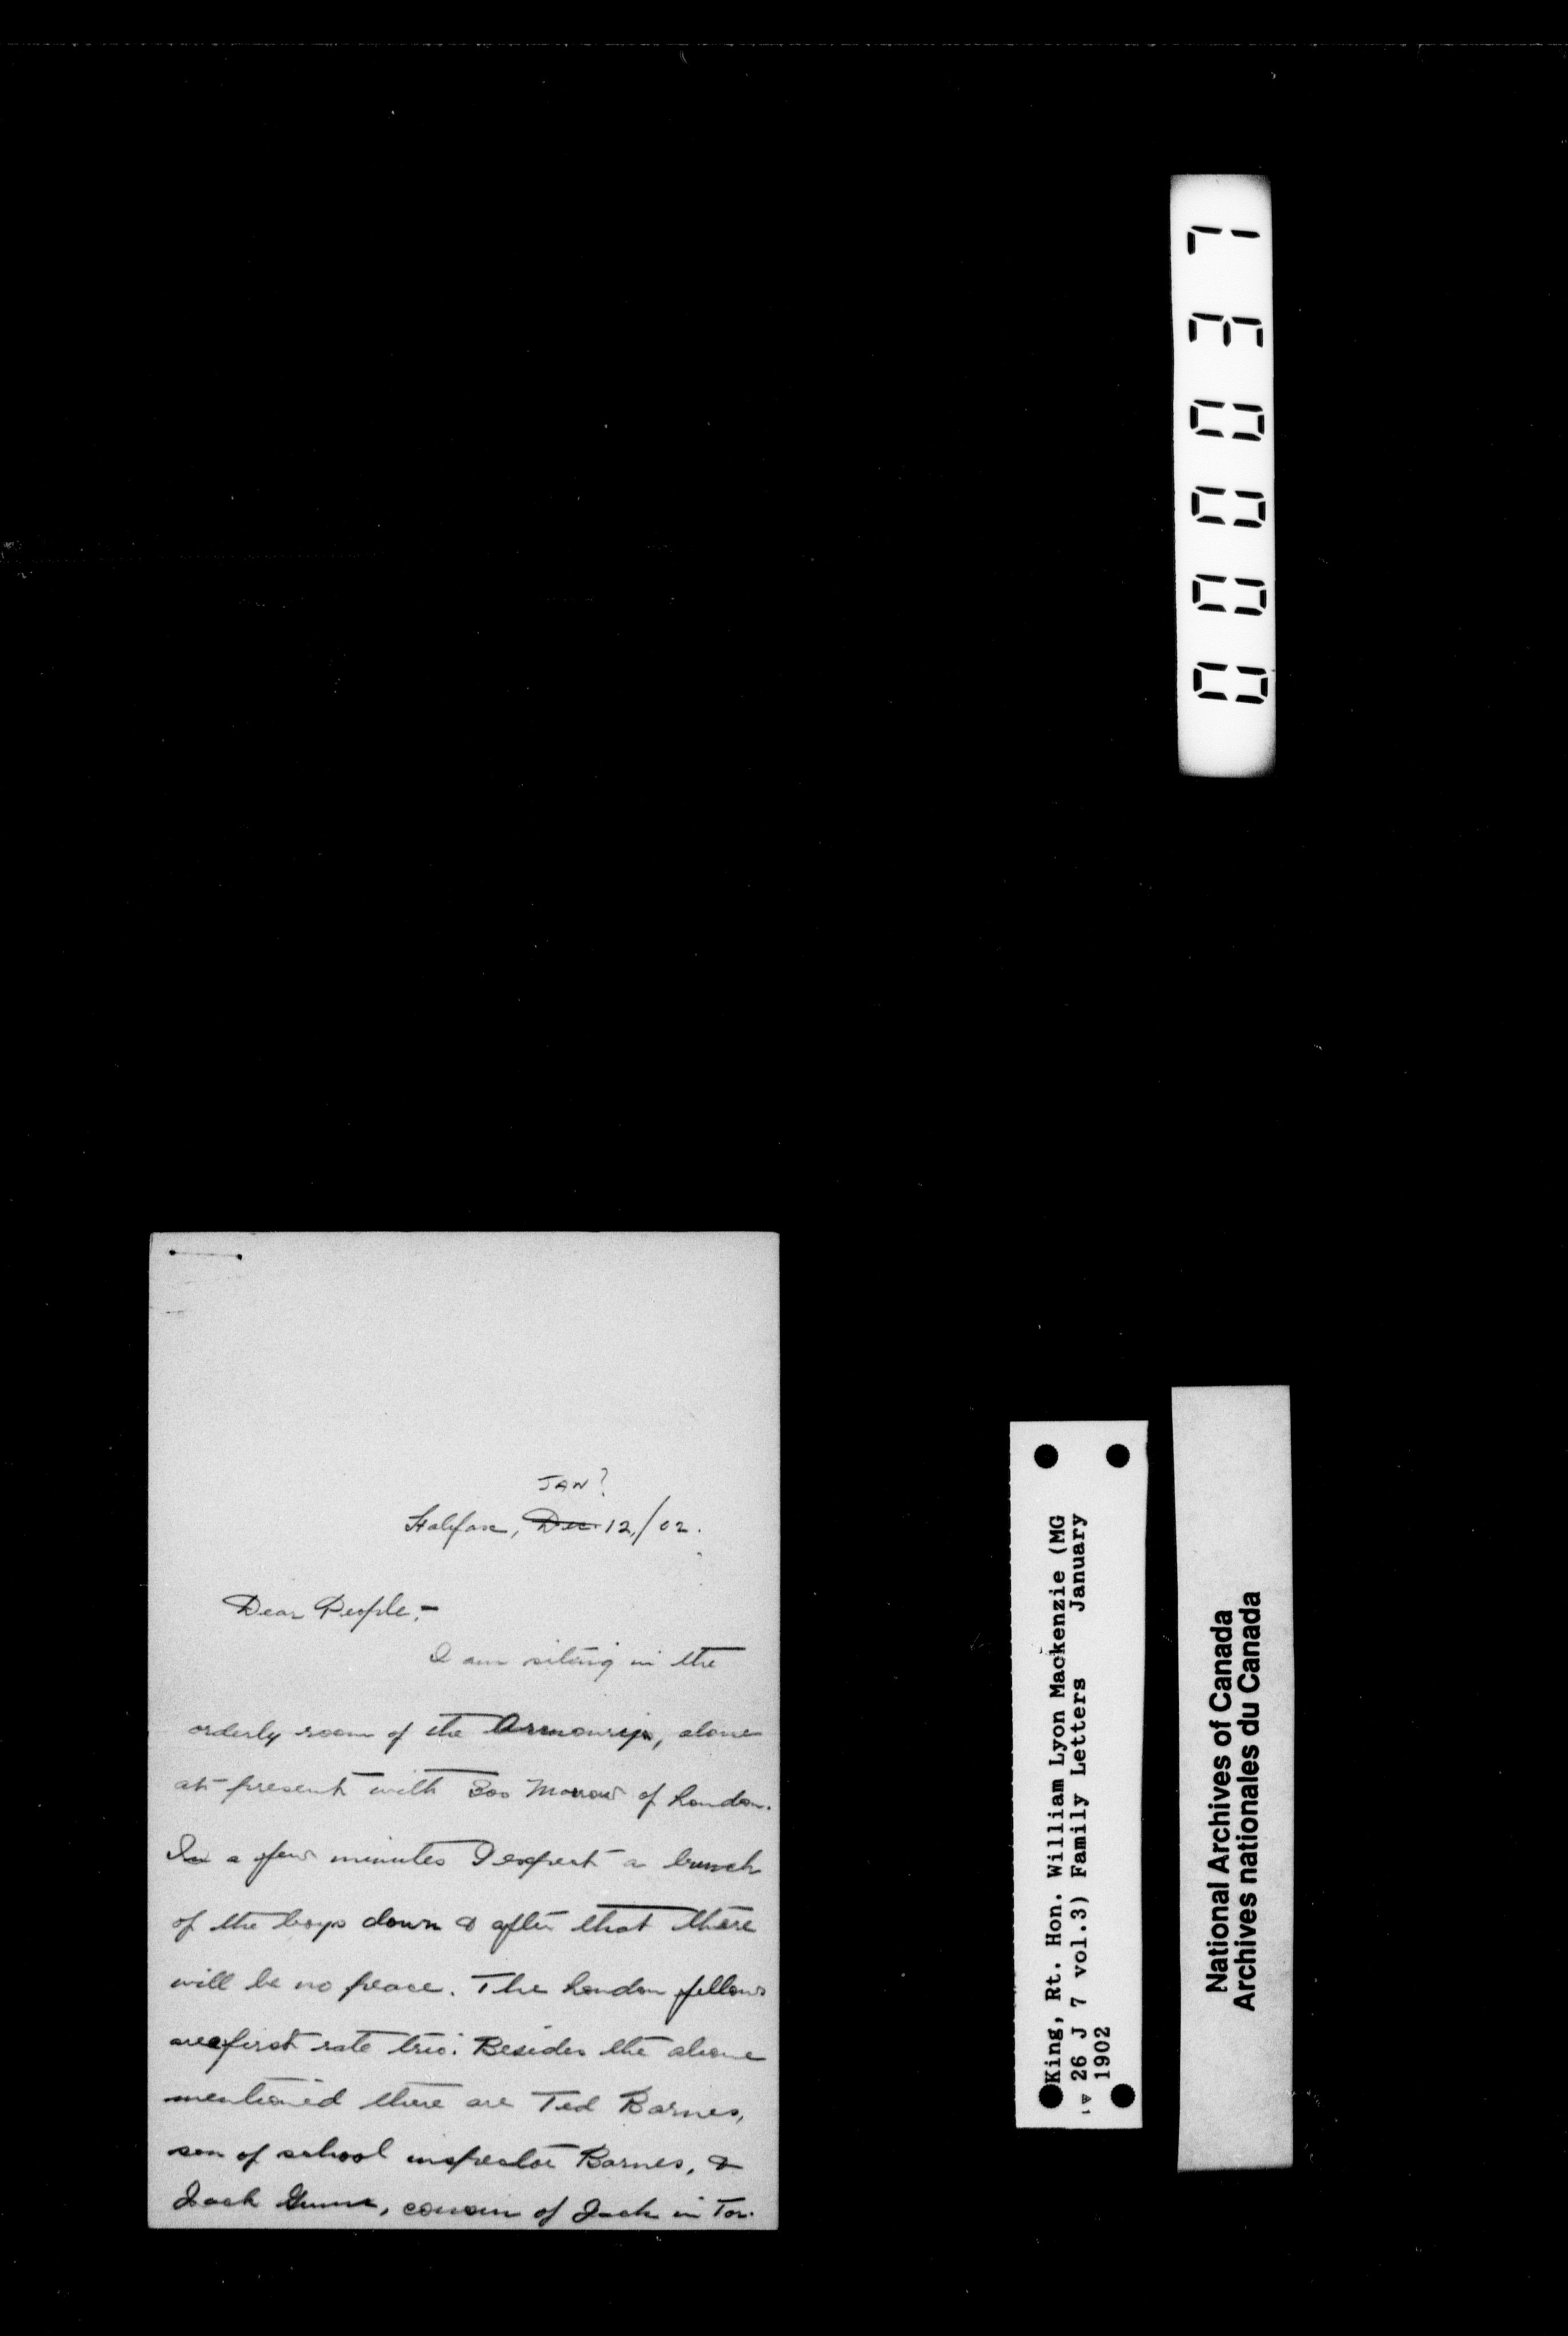 000037
JAN?
Halifax, Dec. 12/02.
Dear People,-
I am siting in the
orderly room of the Armourys, alone
at present with Boo Morrow of London.
In a few minutes I expect a bunch
of the boys down & after that there
will be no peace. The London fellows
are a first rate trio. Besides the above
mentioned there are Ted Barnes,
son of school inspector Barnes, &
Jack Gunn, cousin of Jack in Tor.
King, Rt. Hon. William Lyon Mackenzie (MG
26 J 7 vol.3) Family Letters January
1902
National Archives of Canada
Archives nationales du Canada